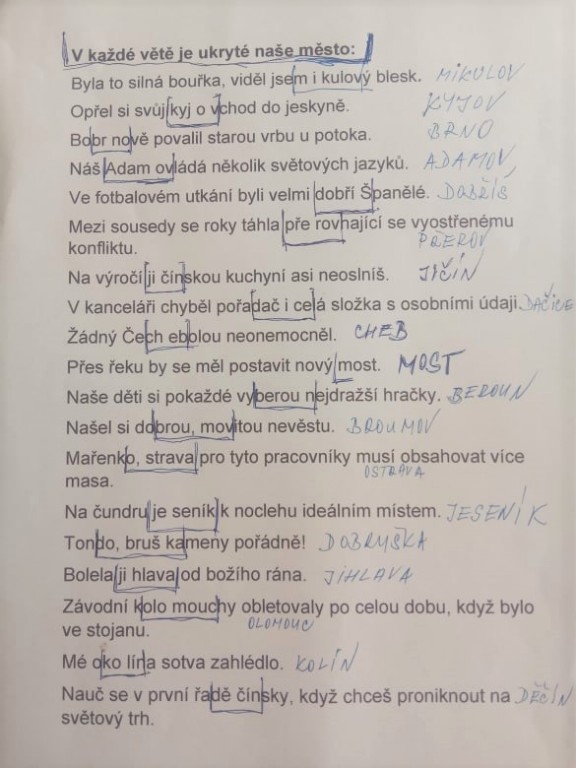 V každé větě je ukryté naše město:
Byla to silná bouřka, viděl jsem i kulový blesk. MIKULOV
Opřel si svůj kyj o vchod do jeskyně. KYJOV
Bobr nově povalil starou vrbu u potoka. BRNO
Náš Adam ovládá několik světových jazyků. ADAMOV
Ve fotbalovém utkání byli velmi dobří Španělé. DOBŘÍŠ
Mezi sousedy se roky táhla pře rovnající se vyostřenému
konfliktu. PŘEROV
Na výročí ji čínskou kuchyní asi neoslníš. JIČÍN
V kanceláři chyběl pořadač i celá složka s osobními údaji. DAČICE
Žádný Čech ebolou neonemocněl. CHEB
Přes řeku by se měl postavit nový most. MOST
Naše děti si pokaždé vyberou nejdražší hračky. BEROUN
Našel si dobrou, movitou nevěstu. BROUMOV
Mařenko, strava pro tyto pracovníky musí obsahovat více
masa. OSTRAVA
Na čundru je seník k noclehu ideálním místem. JESENÍK
Tondo, bruš kameny pořádně! DOBRUŠKA
Bolela ji hlava od božího rána. JIHLAVA
Závodní kolo mouchy obletovaly po celou dobu, když bylo
ve stojanu. OLOMOUC
Mé oko lína sotva zahlédlo. KOLÍN
Nauč se v první řadě čínsky, když chceš proniknout na DĚČÍN
světový trh.